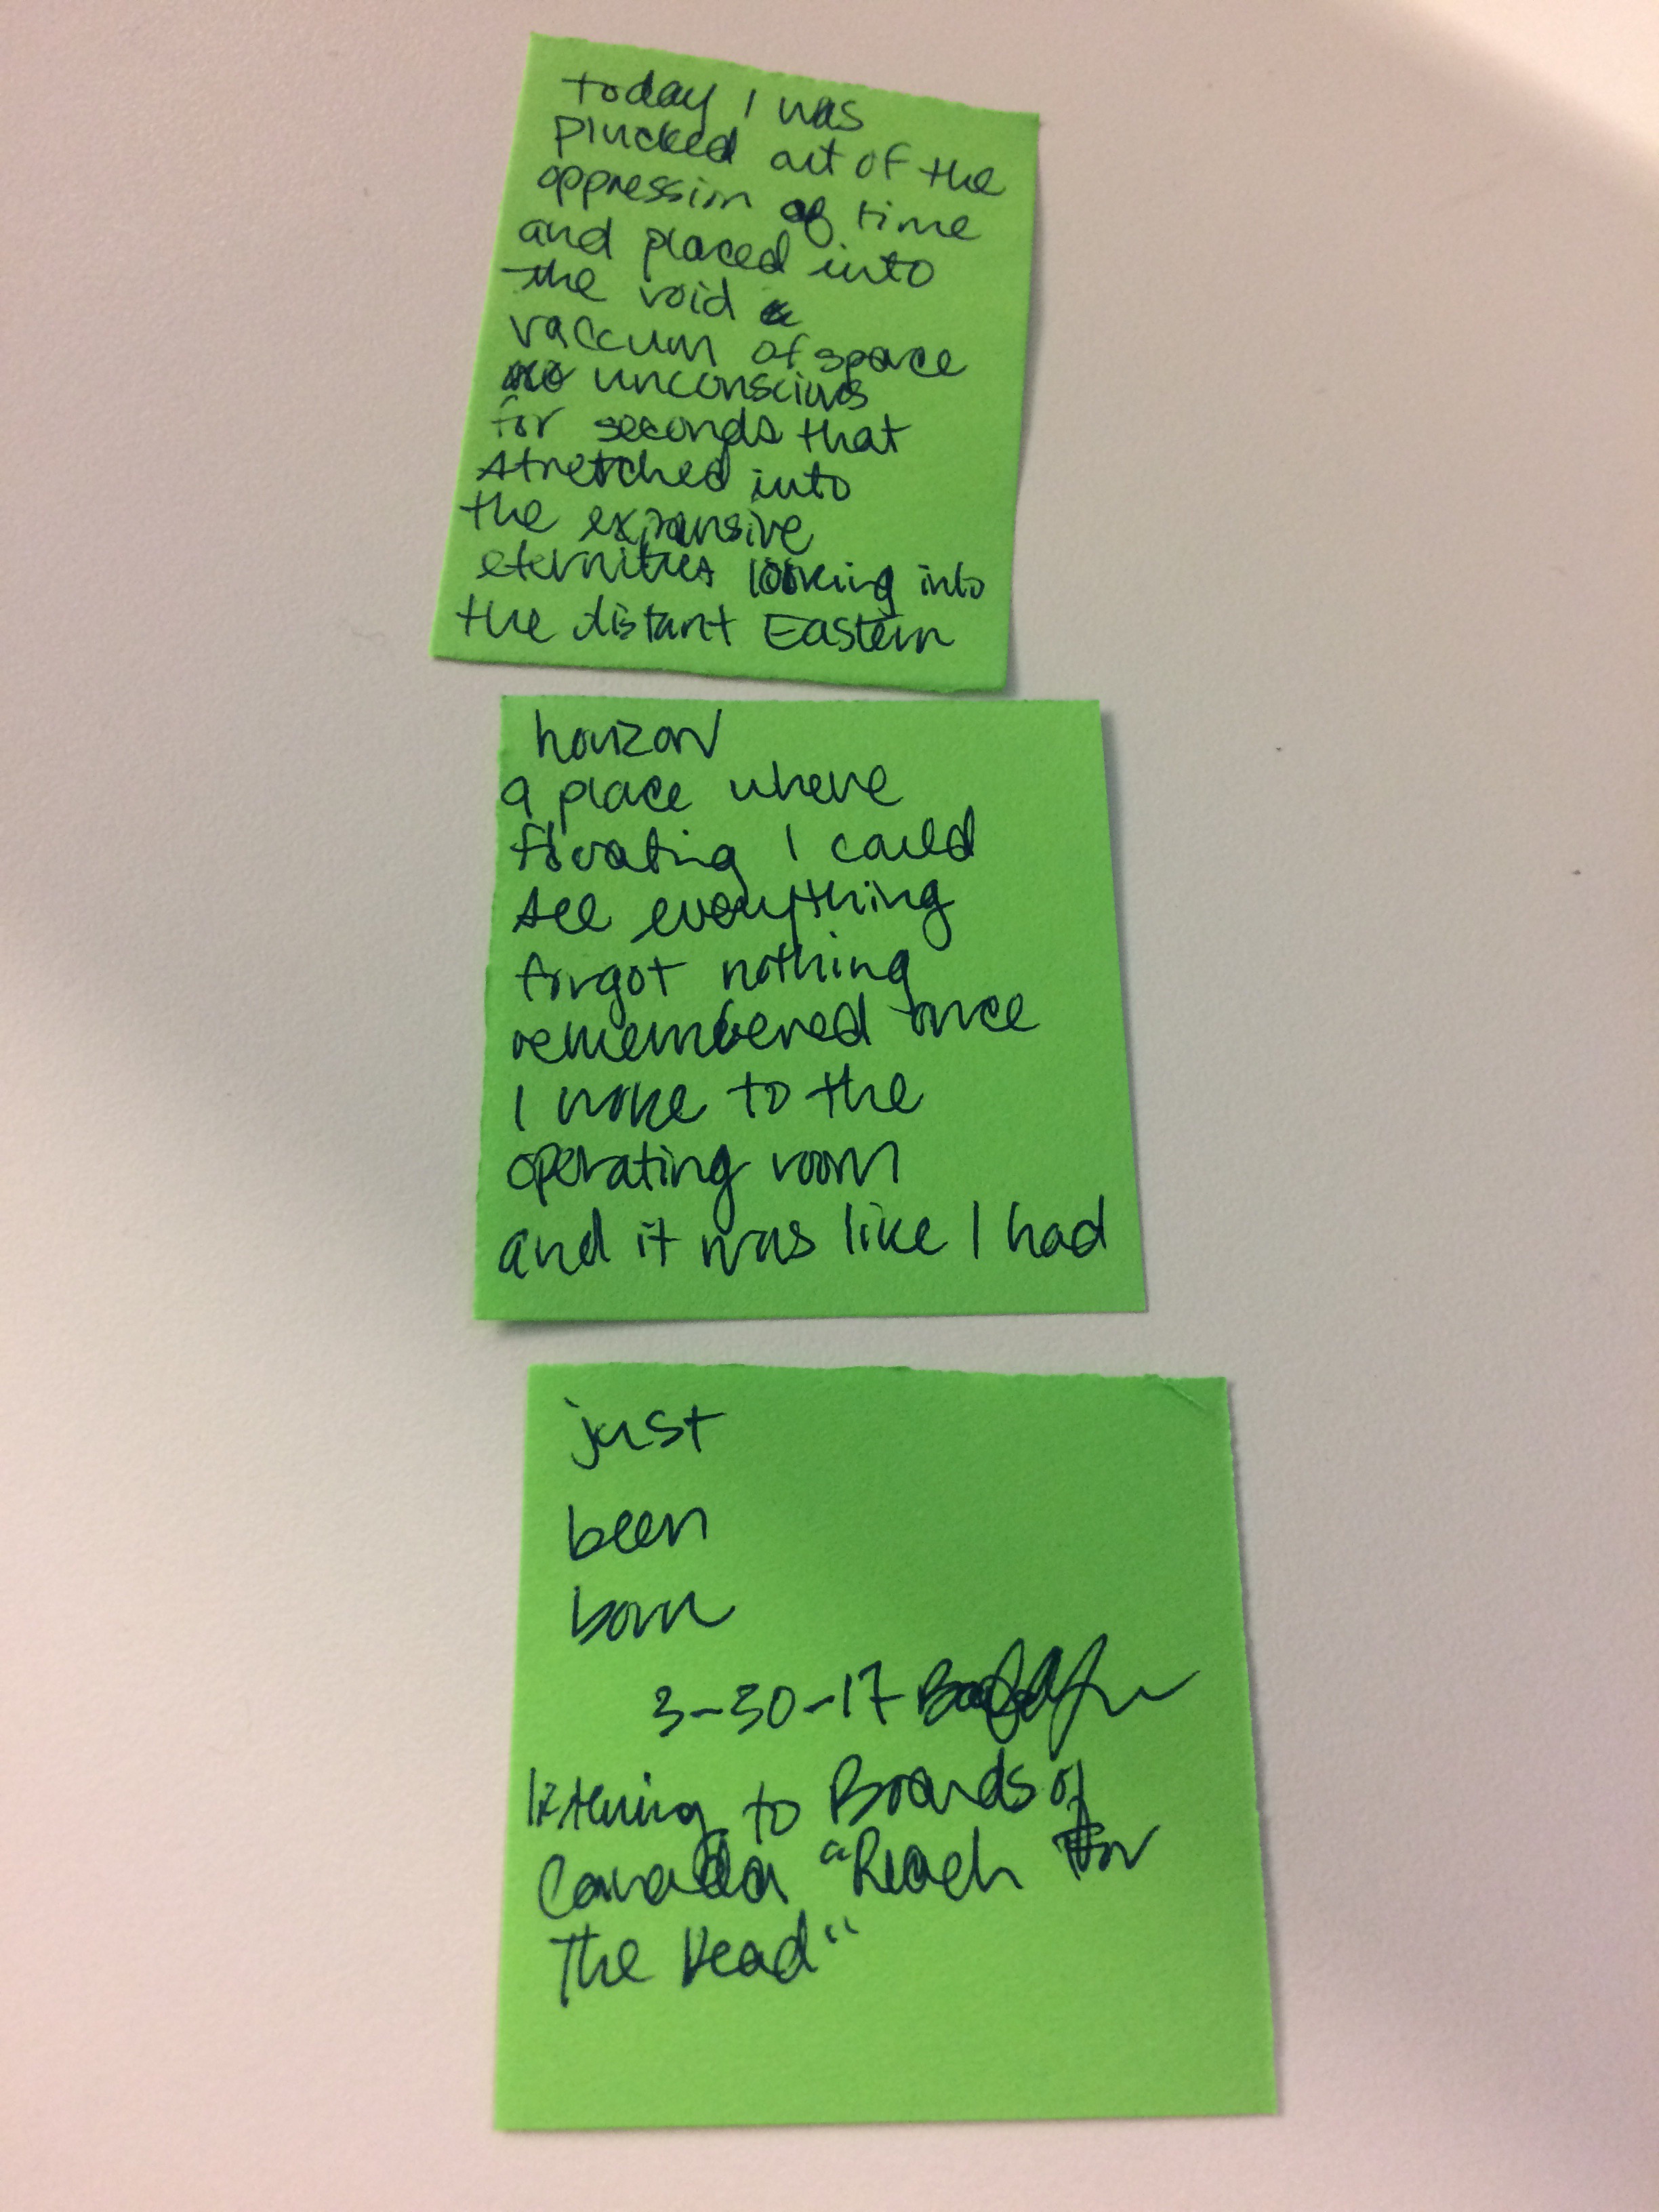 today I was
plucked out of the
oppression of time
and placed into
the void
vaccum of space
unconscious
for seconds that
stretched into
the expansive
eternities looking into
the distant Eastern
horizon
a place where
floating I could
see everything
forgot nothing
remembered once
I woke to the
operating room
and it was like I had
just
been
born
3-30-17
listening to Boards of
Canada "Reach For
The Dead"